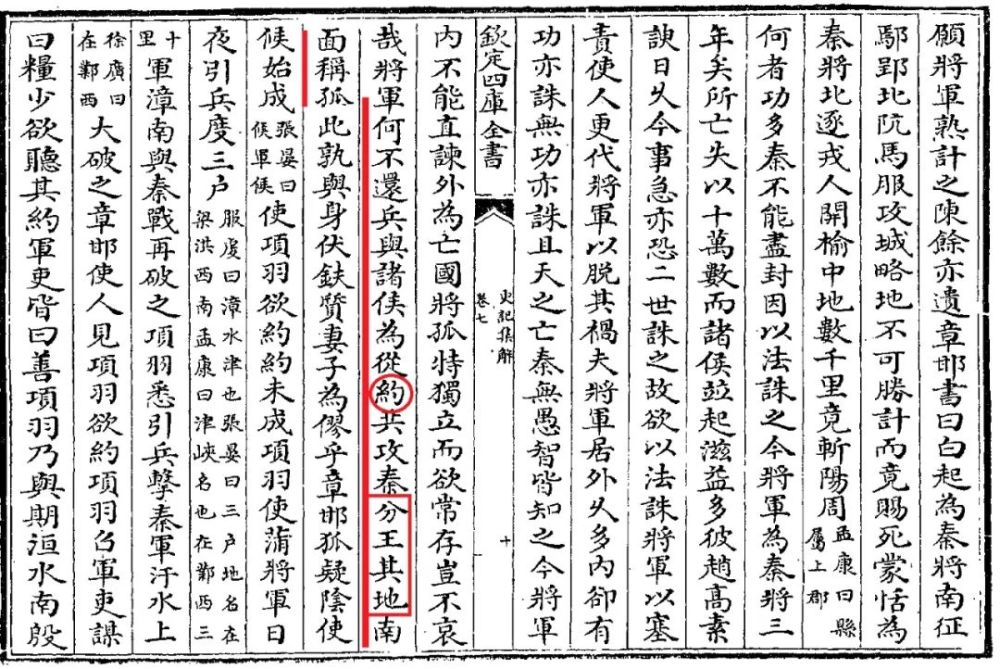 願將軍熟計之陳餘亦遺章邯書曰白起為秦將南征
鄢郢北阬馬服攻城略地不可勝計而竟賜死蒙恬為
秦將北逐戎人開榆中地數千里竟斬陽周孟康曰縣屬上郡
何者功多秦不能盡封因以法誅之今將軍為秦將三
年矣所亡失以十萬數而諸侯竝起滋益多彼趙髙素
諛日乆今事急亦恐二世誅之故欲以法誅將軍以塞
責使人更代將軍以脱其禍夫將軍居外乆多内卻有
功亦誅無功亦誅且天之亡秦無愚智皆知之今將軍
欽定四庫全書
史記集解
卷七
十
内不能直諫外為亡國將孤特獨立而欲常存豈不哀
哉將軍何不還兵與諸侯為從約共攻秦分王其地南
面稱孤此孰與身伏鈇質妻子為僇乎章邯狐疑陰使
候始成張晏曰候軍候使項羽欲約約未成項羽使蒲將軍日
夜引兵度三户服虔曰漳水津也張晏曰三户地名在梁洪西南孟康曰津峽名也在鄴西三
十里軍漳南與秦戰再破之項羽悉引兵擊秦軍汙水上
徐廣曰在鄴西大破之章邯使人見項羽欲約項羽召軍吏謀
曰糧少欲聽其約軍吏皆曰善項羽乃與期洹水南殷